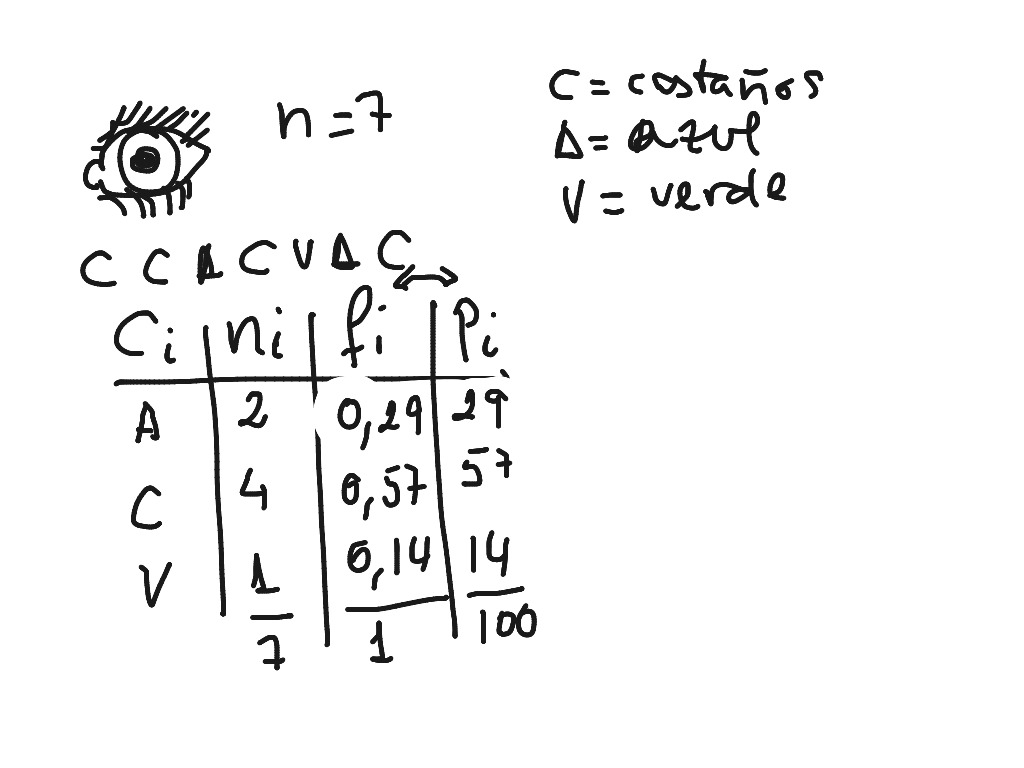 n = 7
C = costaños
A = azul
V = verde
C C A C V A C
Ci ni fi Pi
A 2 0,29 29
C 4 0,57 57
V 1 0,14 14
7 1 100